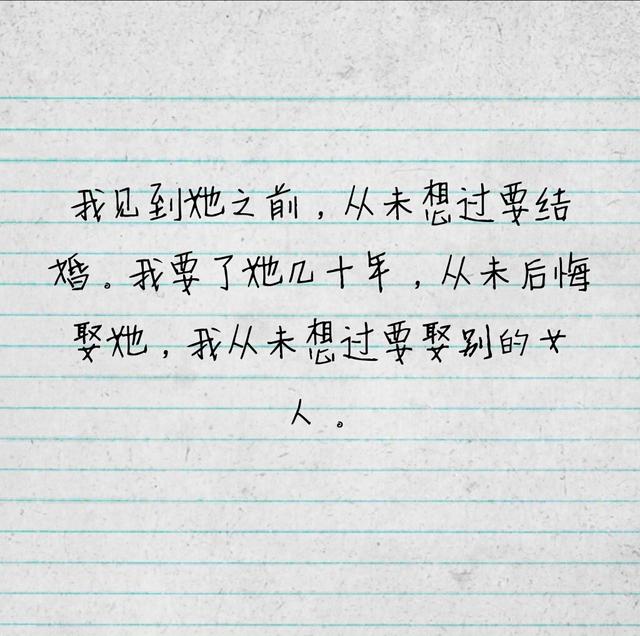 我见到她之前，从未想过要结
婚。我要了她几十年，从未后悔
娶她，我从未想过要娶别的女
人。